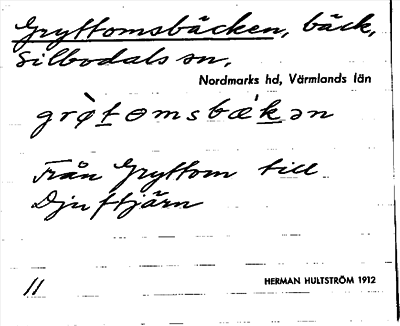 Gryttomsbäcken, bäck,
Silbodals sn,
Nordmarks hd, Värmlands län
grø̀t̲omsbæ̀k̲ən
Från Gryttom till
Djuftjärn
11
HERMAN HULTSTRÖM 1912